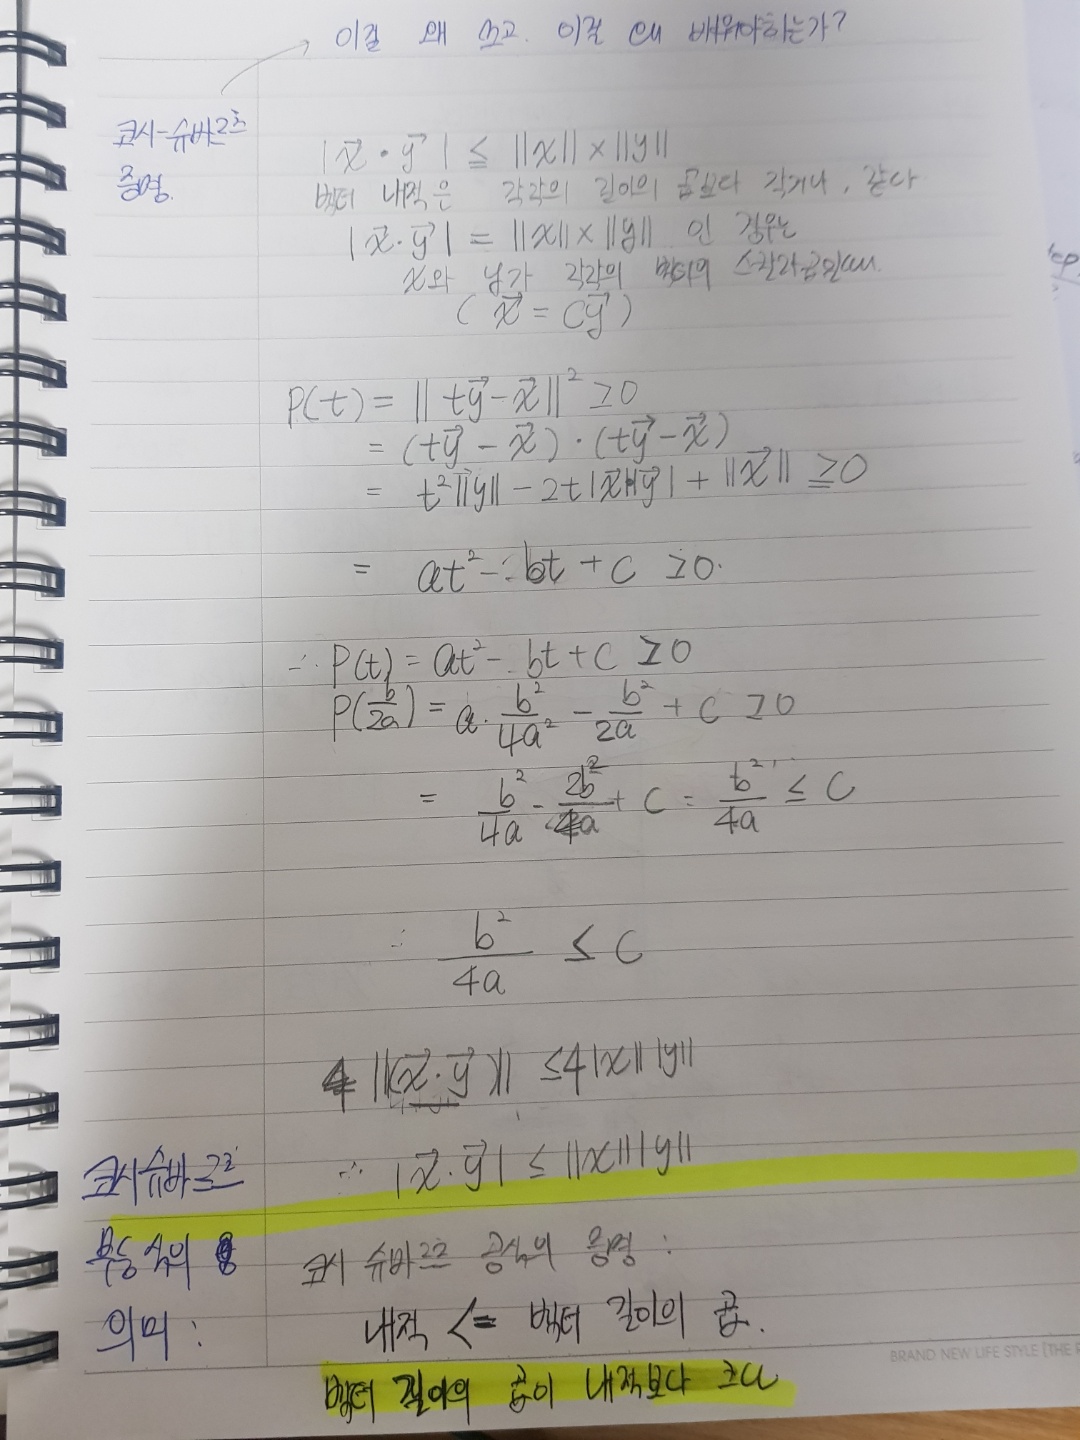 이걸 왜 쓰고. 이걸 왜 배워야하는가?
코시-슈바르츠
증명.
|x⃗ · y⃗| ≦ ||x|| × ||y||
벡터 내적은 각각의 길이의 곱보다 작거나, 같다
|x⃗·y⃗| = ||x|| × ||y|| 인 경우는
x와 y가 각각의 벡터의 스칼라곱일때.
( x⃗ = cy⃗ )
P(t) = || ty⃗ - x⃗ ||² ≥ 0
= (ty⃗ - x⃗) · (ty⃗ - x⃗)
= t²||y|| - 2t|x⃗||y⃗| + ||x⃗|| ≧ 0
= at² - bt + c ≥ 0.
∴ P(t) = at² - bt + c ≥ 0
P(b/2a) = a · b²/4a² - b²/2a + c ≥ 0
= b²/4a - 2b²/4a + c = b²/4a ≤ c
∴ b²/4a ≤ c
4 ||(x⃗·y⃗)|| ≤ 4|x|| |y||
∴ |x⃗·y⃗| ≤ ||x|| |y||
코시슈바르츠
부등식의
의미 :
코시 슈바르츠 공식의 증명 :
내적 <= 벡터 길이의 곱.
BRAND NEW LIFE STYLE [THE P
벡터 길이의 곱이 내적보다 크다